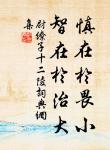 慎在於畏小
智在於治大
尉繚子十二陵詞典網
集